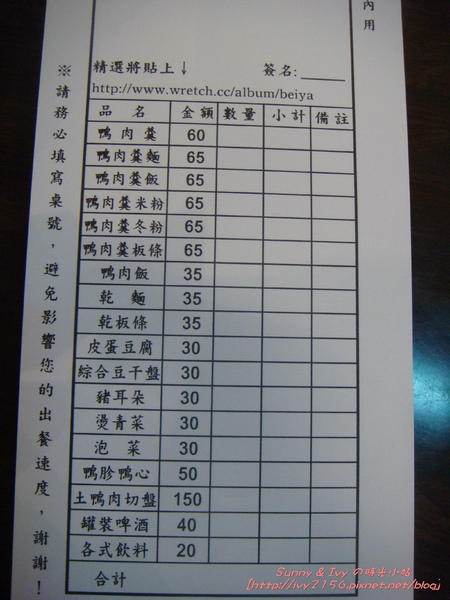 內用
精選將貼上↓ 簽名:_____
http://www.wretch.cc/album/beiya
品名 金額 數量 小計 備註
鴨肉羹 60
鴨肉羹麵 65
鴨肉羹飯 65
鴨肉羹米粉 65
鴨肉羹冬粉 65
鴨肉羹板條 65
鴨肉飯 35
乾麵 35
乾板條 35
皮蛋豆腐 30
綜合豆干盤 30
豬耳朵 30
燙青菜 30
泡菜 30
鴨胗鴨心 50
土鴨肉切盤 150
罐裝啤酒 40
各式飲料 20
合計
※請務必填寫桌號,避免影響您的出餐速度,謝謝!
Sunny & Ivy の時光小站
[http://ivy2156.pixnet.net/blog]